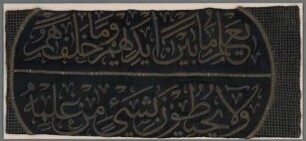 يعلم ما بين أيديهم وما خلفهم
ولا يحيطون بشيئ من علمه